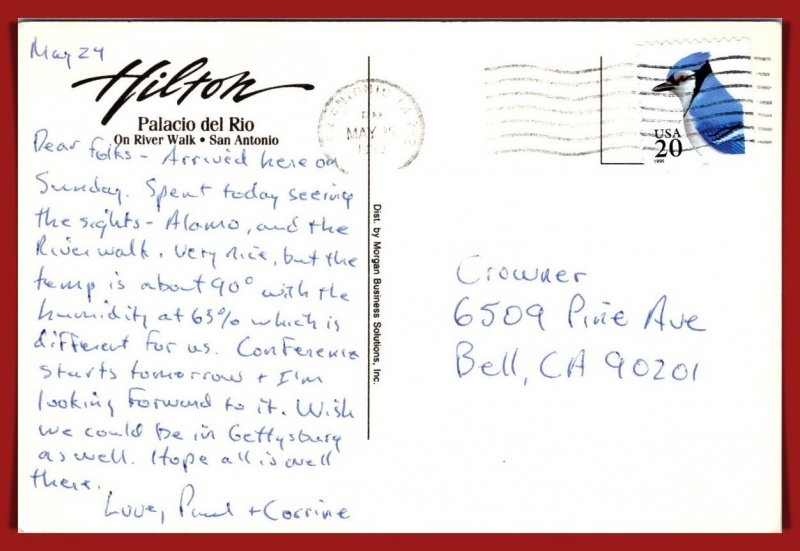 May 24
Hilton
Palacio del Rio
On River Walk • San Antonio
Dear folks - Arrived here on
Sunday. Spent today seeing
the sights - Alamo, and the
Riverwalk. Very nice, but the
temp is about 90° with the
humidity at 65% which is
different for us. Conference
starts tomorrow + I'm
looking forward to it. Wish
we could be in Gettysburg
as well. Hope all is well
there.
Love, Paul + Corrine
Dist. by Morgan Business Solutions, Inc.
MAY 25
USA
20
1996
Crowner
6509 Pine Ave
Bell, CA 90201